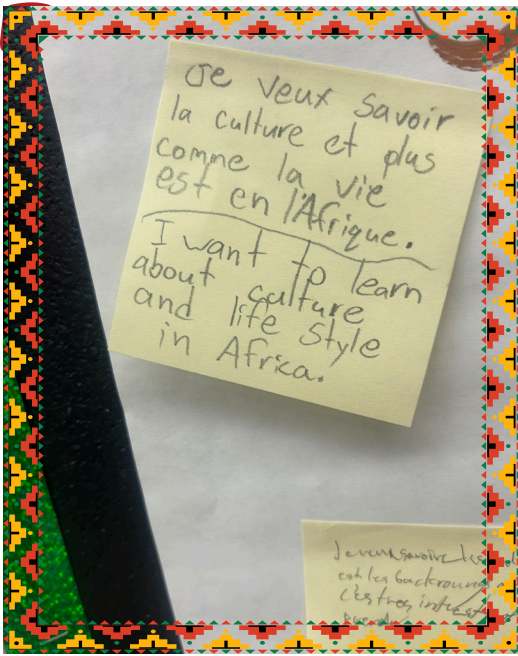 Je veux savoir
la culture et plus
comme la vie
est en l'Afrique.
I want to learn
about culture
and life style
in Africa.
Je veux savoir les
les background
c'est très